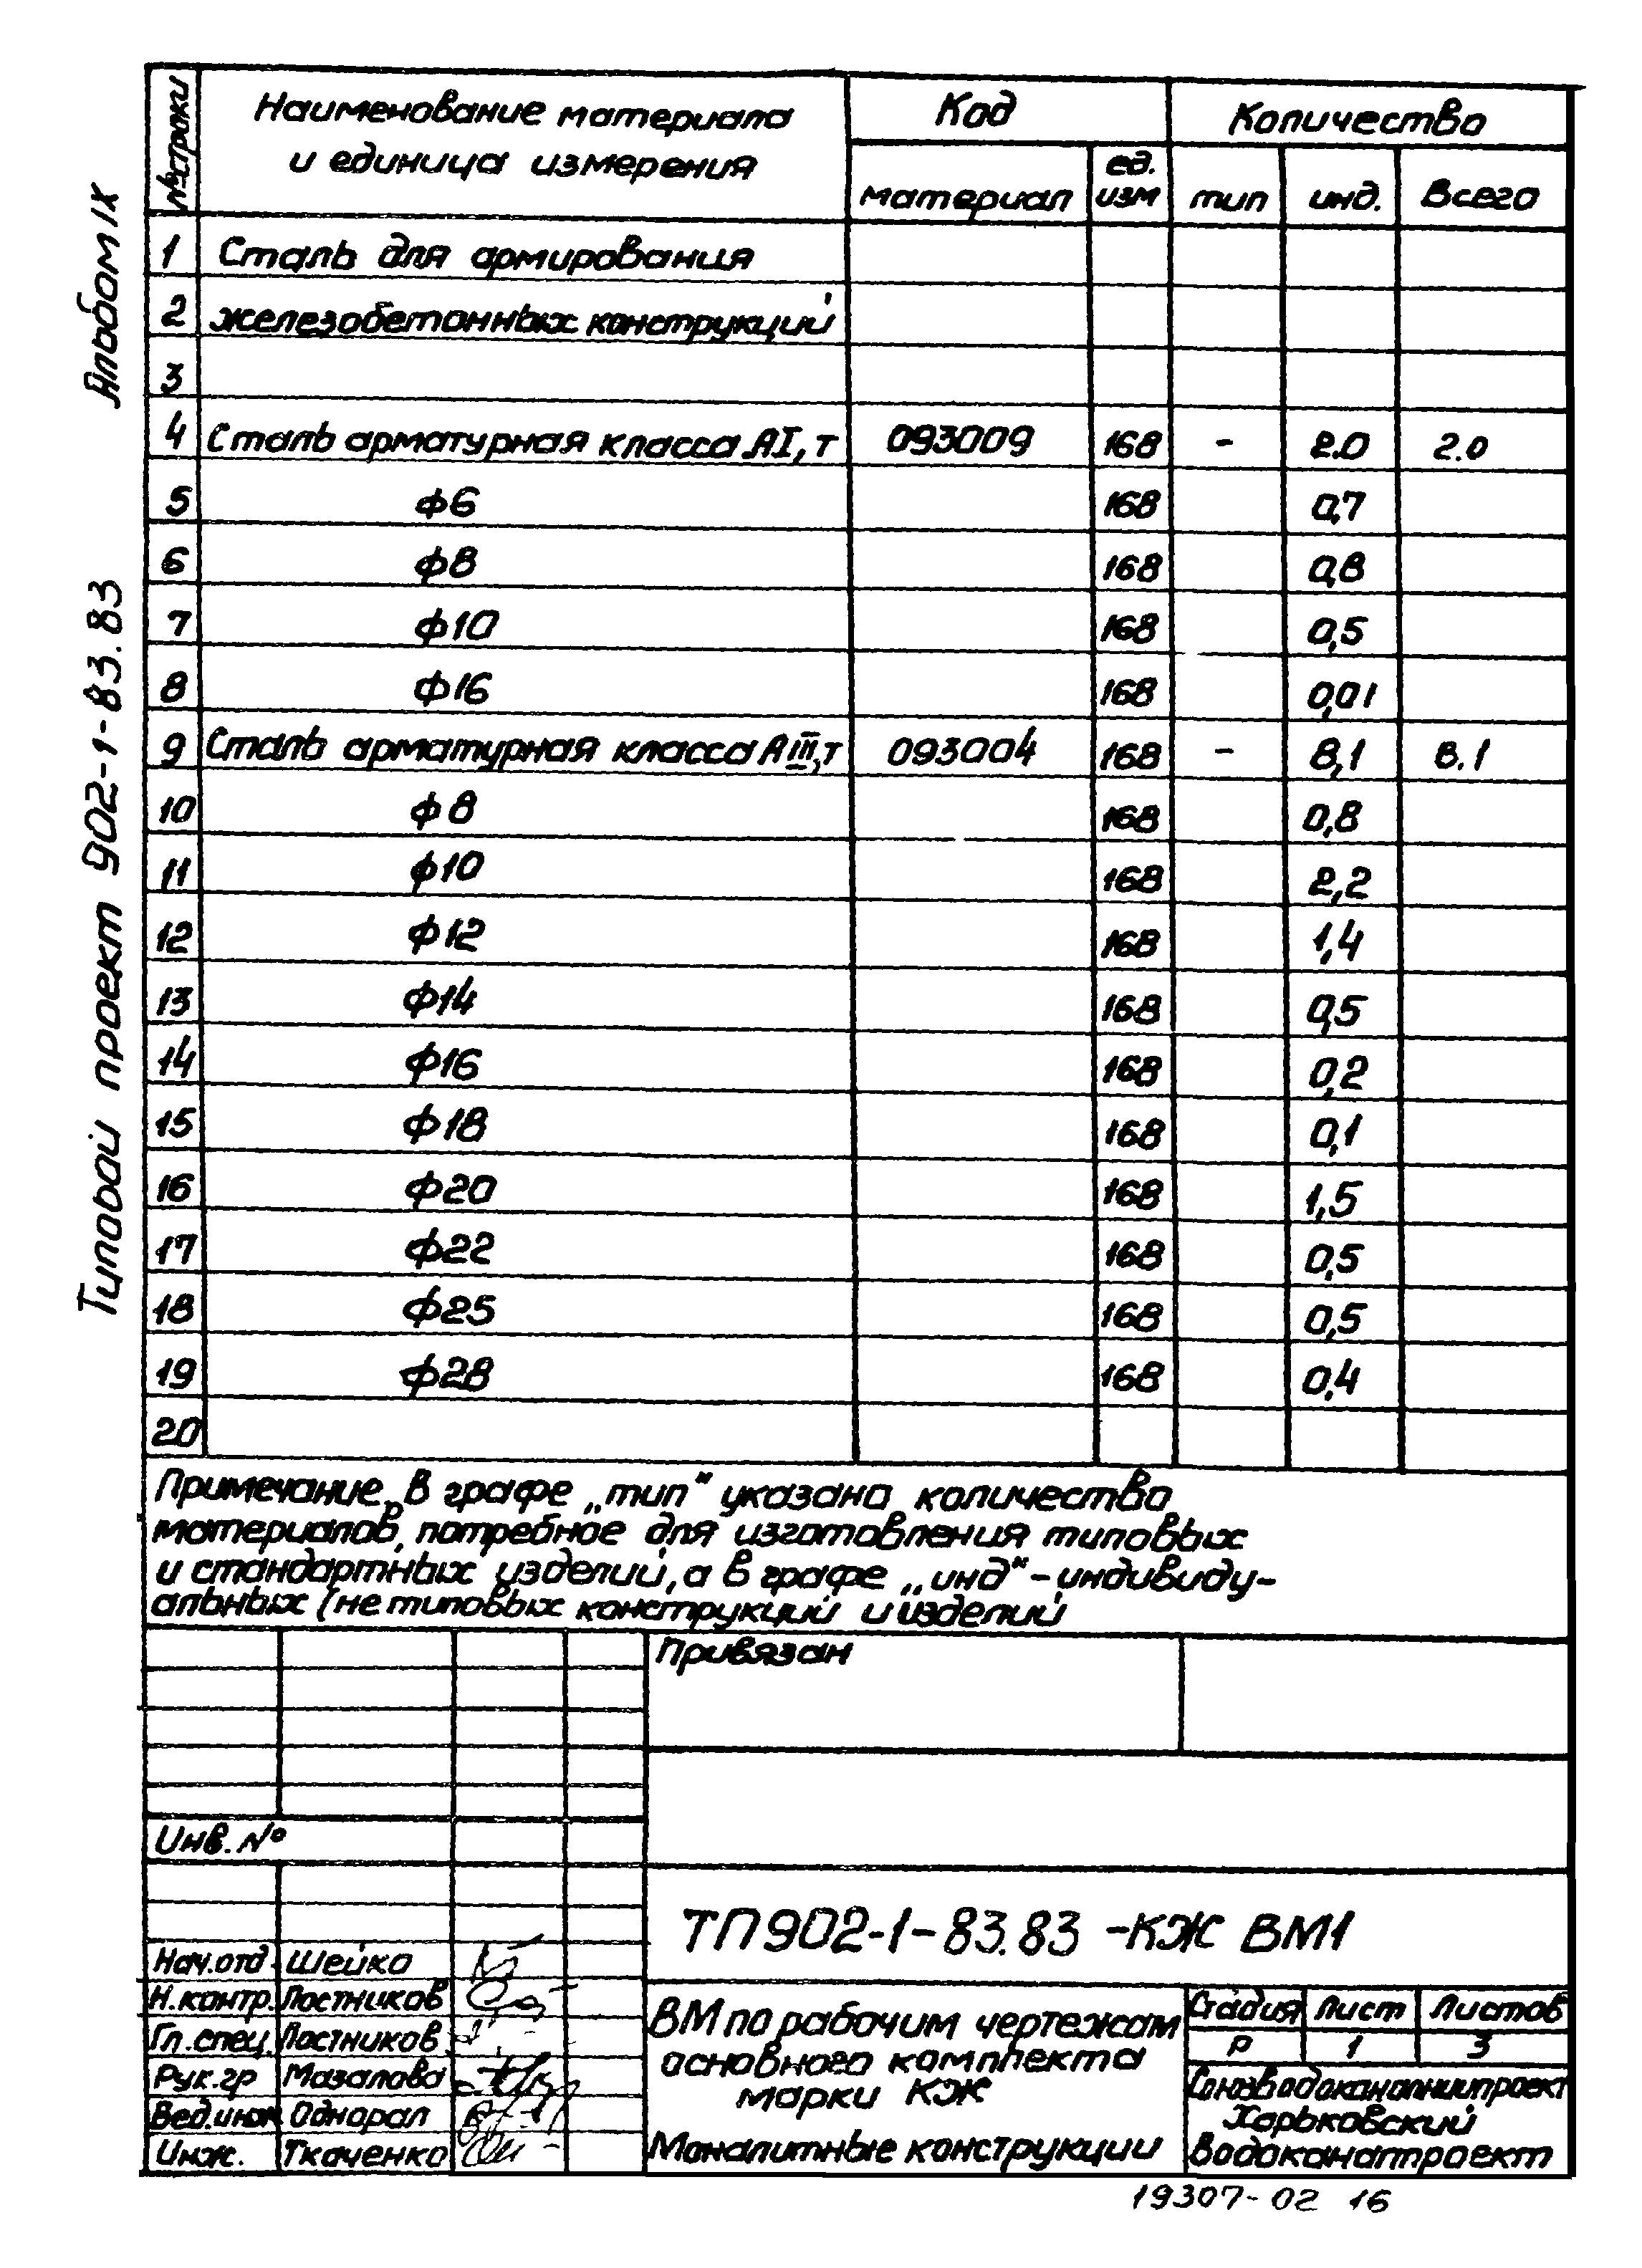 Альбом IX
Типовой проект 902-1-83.83
№ строки
Наименование материала
и единица измерения
Код
Количество
материал
ед.
изм
тип
инд.
Всего
1 Сталь для армирования
2 железобетонных конструкций
3
4 Сталь арматурная класса АI, т 093009 168 - 2.0 2.0
5 ф6 168 0,7
6 ф8 168 0,8
7 ф10 168 0,5
8 ф16 168 0,01
9 Сталь арматурная класса АIII, т 093004 168 - 8,1 8.1
10 ф8 168 0,8
11 ф10 168 2,2
12 ф12 168 1,4
13 ф14 168 0,5
14 ф16 168 0,2
15 ф18 168 0,1
16 ф20 168 1,5
17 ф22 168 0,5
18 ф25 168 0,5
19 ф28 168 0,4
20
Примечание, В графе „тип" указано количество
материалов, потребное для изготовления типовых
и стандартных изделий, а в графе „инд"- индивиду-
альных (не типовых конструкций и изделий
Привязан
Инв. №
ТП902-1-83.83 -КЖ ВМ1
Нач.отд. Шейко
Н.контр. Постников
Гл.спец. Постников
Рук.гр Мазалова
Вед.инж Однорал
Инж. Ткаченко
ВМ по рабочим чертежам
основного комплекта
марки КЖ
Монолитные конструкции
Стадия Лист Листов
Р 1 3
Союзводоканалниипроект
Харьковский
Водоканалпроект
19307-02 16